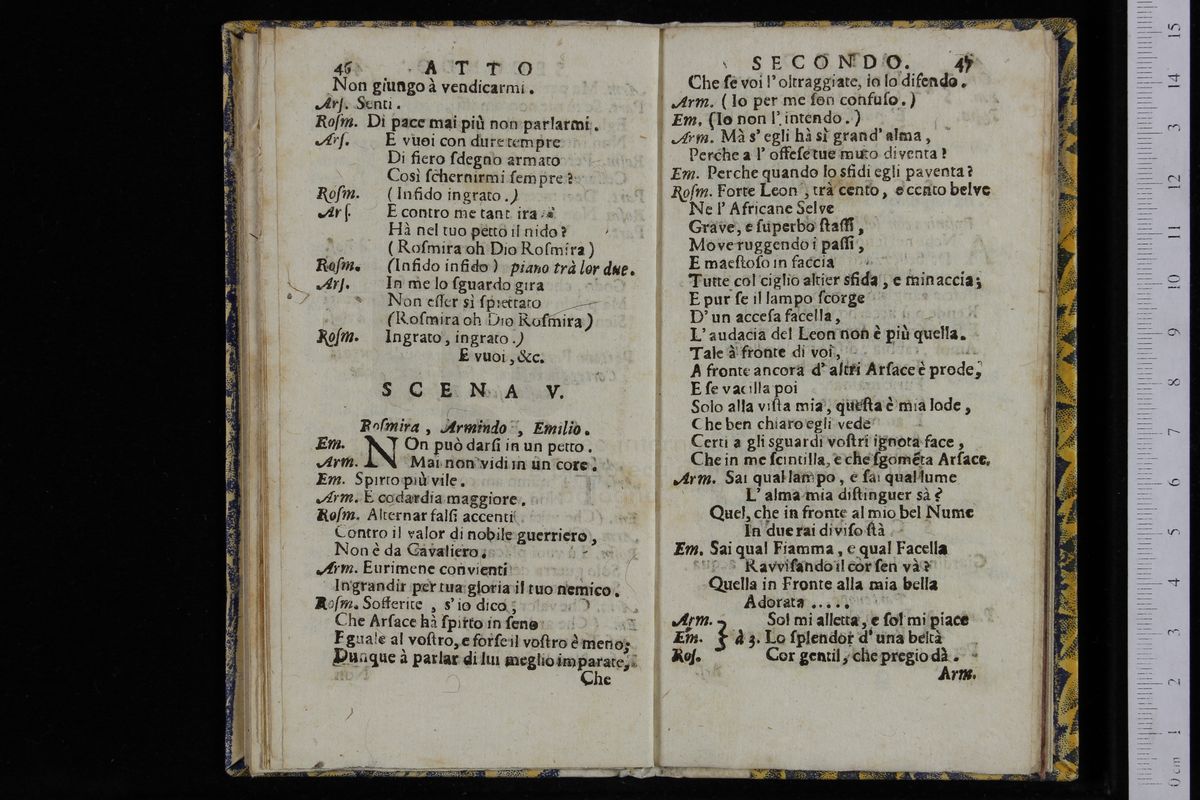 46 ATTO
Non giungo à vendicarmi.
Arſ. Senti.
Roſm. Di pace mai più non parlarmi.
Arſ. E vuoi con dure tempre
Di fiero ſdegno armato
Così ſchernirmi ſempre?
Roſm. (Infido ingrato.)
Arſ. E contro me tant ira
Hà nel tuo petto il nido?
(Roſmira oh Dio Roſmira)
Roſm. (Infido infido) piano trà lor due.
Arſ. In me lo ſguardo gira
Non eſſer sì ſpietato
(Roſmira oh Dio Roſmira)
Roſm. Ingrato, ingrato.)
E vuoi, &c.
SCENA V.
Roſmira, Armindo, Emilio.
Em. NOn può darſi in un petto.
Arm. Mai non vidi in un core.
Em. Spirto più vile.
Arm. E codardia maggiore.
Roſm. Alternar falſi accenti
Contro il valor di nobile guerriero,
Non è da Cavaliero.
Arm. Eurimene convienti
Ingrandir per tua gloria il tuo nemico.
Roſm. Sofferite, s'io dico,
Che Arſace hà ſpirto in ſeno
Eguale al voſtro, e forſe il voſtro è meno;
Dunque à parlar di lui meglio imparate,
Che
SECONDO. 47
Che ſe voi l'oltraggiate, io lo difendo.
Arm. (Io per me ſon confuſo.)
Em. (Io non l'intendo.)
Arm. Mà s'egli hà sì grand'alma,
Perche a l'offeſe tue muto diventa?
Em. Perche quando lo sfidi egli paventa?
Roſm. Forte Leon, trà cento, e cento belve
Ne l'Africane Selve
Grave, e ſuperbo ſtaſſi,
Move ruggendo i paſſi,
E maeſtoſo in faccia
Tutte col ciglio altier sfida, e minaccia;
E pur ſe il lampo ſcorge
D'un acceſa facella,
L'audacia del Leon non è più quella.
Tale à fronte di voi,
A fronte ancora d'altri Arſace è prode,
E ſe vacilla poi
Solo alla viſta mia, queſta è mia lode,
Che ben chiaro egli vede
Certi a gli sguardi voſtri ignota face,
Che in me ſcintilla, e che ſgomẽta Arſace.
Arm. Sai qual lampo, e ſai qual lume
L'alma mia diſtinguer sà?
Quel, che in fronte al mio bel Nume
In due rai diviſo ſtà
Em. Sai qual Fiamma, e qual Facella
Ravviſando il cor ſen và?
Quella in Fronte alla mia bella
Adorata .....
Arm. Sol mi alletta, e ſol mi piace
Em. } à 3. Lo ſplendor d'una beltà
Roſ. Cor gentil, che pregio dà.
Arm.
15
14
13
12
11
10
9
8
7
6
5
4
3
2
1
0 cm